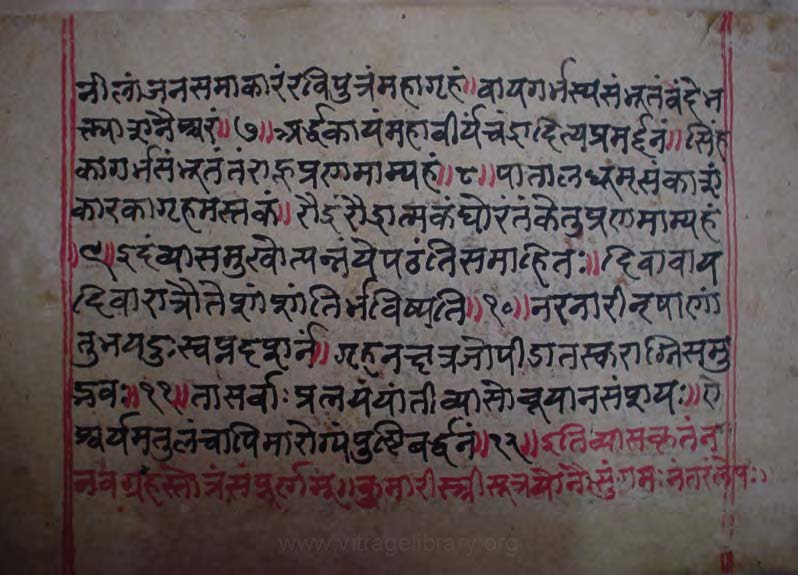 नीलांजनसमाकारंरविपुत्रंमहागृहं॥वायगर्भस्यसंभूतंवंदेभ
क्त्याशनैश्चरं॥७॥अर्द्धकायंमहावीर्यंचंद्रादित्यप्रमर्द्दनं॥सिंह
कागर्भसंभूतंतंराहुप्रणमाम्यहं॥८॥पातालधूमसंकाशं
कारकागृहमस्तकं॥रौद्रंरौद्रात्मकंघोरंतंकेतुप्रणमाम्यहं
॥९॥इदंव्यासमुखोत्पन्नंयेपठंतिसमाहितः॥दिवावाय
दिवारात्रौतेशांशांतिर्भविष्यति॥१०॥नरनारीनृपाणां
तुभयदुःस्वप्नदर्शनं॥गृहनक्षत्रजोपीडातस्कराग्निसमु
द्भवः॥११॥तासर्वाःप्रलयंयांतीव्यासोब्रूयानसंशयः॥ऐ
श्चर्यमतुलंचापिमारोग्यंपुष्टिबर्द्धनं॥१२॥इतिव्यासकृतंन्
नवग्रहस्तोत्रंसंपूर्णम्॥कुमारीस्त्रीसूत्र
www.vitragelibrary.org